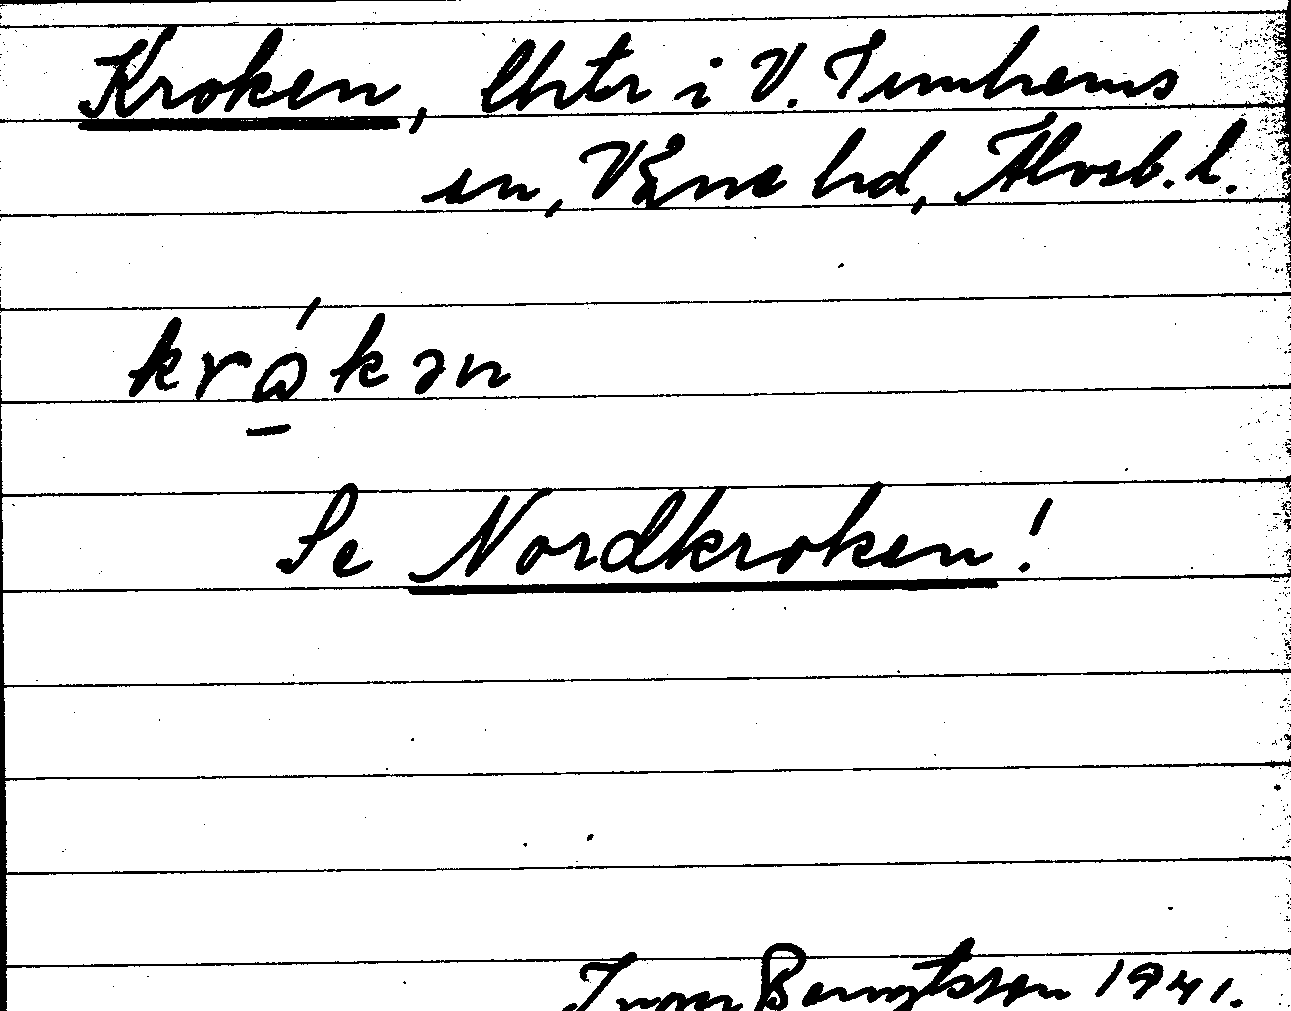 Kroken, lhtr i V. Tunhems
sn, Väne hd, Älvsb. l.
krǻkən
Se Nordkroken!
Ivar Bengtsson 1941.